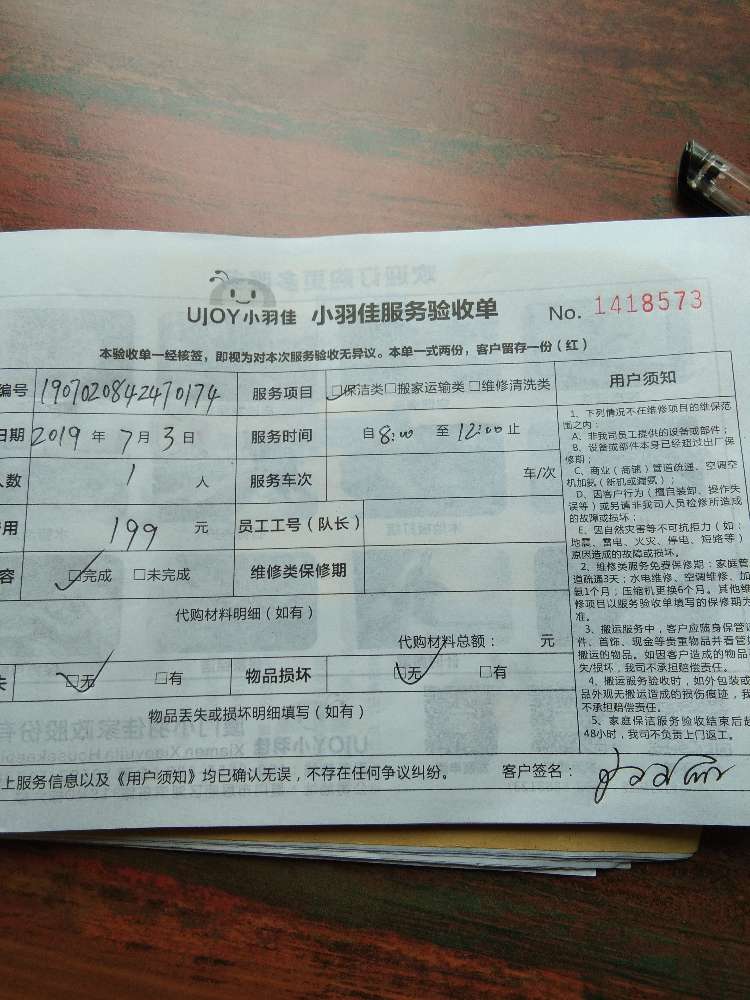 UJOY小羽佳 小羽佳服务验收单 No. 1418573
本验收单一经核签，即视为对本次服务验收无异议。本单一式两份，客户留存一份（红）
编号 1907020842470174 服务项目 □保洁类□搬家运输类□维修清洗类
日期 2019 年 7 月 3 日 服务时间 自 8:00 至 12:00 止
人数 1 人 服务车次 车/次
用 199 元 员工工号（队长）
容 □完成 □未完成 维修类保修期
代购材料明细（如有）
代购材料总额： 元
失 □无 □有 物品损坏 □无 □有
物品丢失或损坏明细填写（如有）
上服务信息以及《用户须知》均已确认无误，不存在任何争议纠纷。 客户签名：
用户须知
1、下列情况不在维修项目的维保范
围之内：
A、非我司员工提供的设备或部件；
B、设备或部件本身已经超过出厂保
修期；
C、商业（商铺）管道疏通、空调空
机加氨（新机或漏氨）；
D、因客户行为（擅自装卸、操作失
误等）或另请非我司人员检修所造成
的故障或损坏；
E、因自然灾害等不可抗拒力（如：
地震、雷电、火灾、停电、短路等）
原因造成的故障或损坏。
2、维修类服务免费保修期：家庭管
道疏通3天；水电维修、空调维修、加
氨1个月；压缩机更换6个月。其他维
修项目以服务验收单填写的保修期为
准。
3、搬运服务中，客户应随身保管证
件、首饰、现金等贵重物品并看管好
搬运的物品。如因客户造成的物品
失/损坏，我司不承担赔偿责任。
4、搬运服务验收时，如外包装或
品外观无搬运造成的损伤痕迹，我
不承担赔偿责任。
5、家庭保洁服务验收结束后超
48小时，我司不负责上门返工。